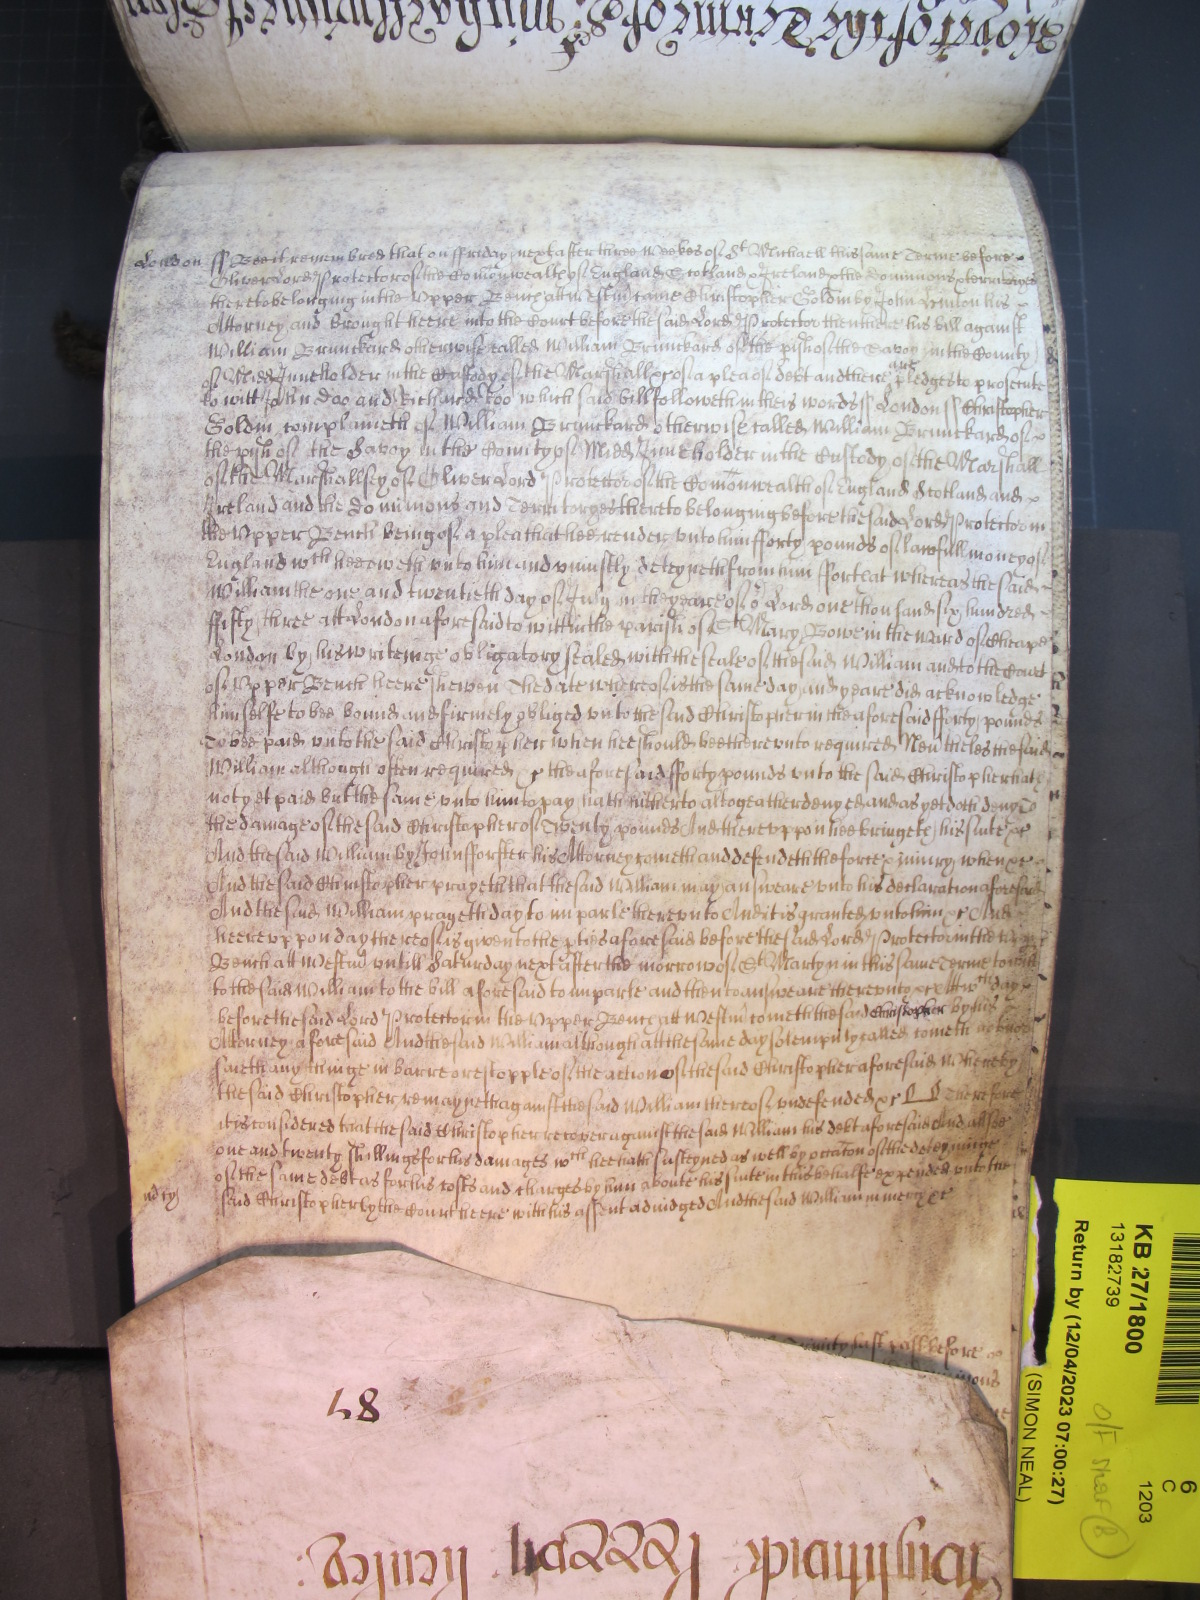 London ss Bee it remembred that on ffriday next after three weekes of St Michaell this same Terme before
Oliver Lord Protector of the Comonwealth of England Scotland & Ireland & the Dominions &
thereto belonging in the Upper Bench att Westm came Christopher Goldin by John his
Attorney and brought heere into the Court before the said Lord Protector then there his bill against
William Brunckard otherwise called William Brunckard of the pish of the Savoy in the County
of Midd Inneholder in the Custody of the Marshall &c of a plea of debt and there are pledges to prosecute
to witt John Doo and Richard Roo which said bill followeth in theis words ss London ss Christopher
Goldin complaineth of William Brunckard otherwise called William Brunckard of
the pish of the Savoy in the County of Midd Inneholder in the Custody of the Marshall
of the Marshallsey of Oliver Lord Protector of the Comonwealth of England Scotland and
Ireland and the Dominions and Territoryes thereto belonging before the said Lord Protector in
the Upper Bench being of a plea that hee render unto him fforty pounds of lawfull money of
England wch hee oweth unto him and uniustly deteyneth from him ffor that whereas the said
William the one and twentieth day of July in the yeare of or Lord one thousand six hundred
ffifty three att London aforesaid to witt in the parish of St Mary Bowe in the ward of Cheape
London by his writeinge obligatory sealed with the seale of the said William and to the Court
of Upper Bench heere shewen The date whereof is the same day and yeare did acknowledge
himselfe to bee bound and firmely obliged unto the said Christopher in the aforesaid fforty pounds
To bee paid unto the said Christopher when hee should bee thereunto required Nevtheles the said
William although often required &c the aforesaid fforty pounds unto the said Christopher hath
not yet paid but the same unto him to pay hath hitherto altogeather denyed and as yet doth deny To
the damage of the said Christopher of Twenty pounds And thereuppon hee bringeth his suite &c
And the said William by John fforster his Attorney cometh and defendeth the force & iniury when &c
And the said Christopher prayeth that the said William may answeare unto his declaration aforesaid
And the said William prayeth day to imparle thereunto And it is granted unto him &c And
heereuppon day thereof is given to the pties aforesaid before the said Lord Protector in the Upper
Bench att Westm untill Saturday next after the morrow of St Martyn in this same Terme to witt
to the said William to the bill aforesaid to imparle and then to answeare thereunto &c Att wch day
before the said Lord Protector in the Upper Bench att Westm cometh the said Christopher by his
Attorney aforesaid And the said William although att the same day solempnly called cometh not nor
saieth any thinge in barre or estopple of the action of the said Christopher aforesaid Whereby
the said Christopher remayneth against the said William thereof undefended &c Therefore
it is considered that the said Christopher recover against the said William his debt aforesaid And alsoe
one and twenty shillings for his damages wch hee hath susteyned as well by occasion of the deteyninge
of the same debt as for his costs and charges by him aboute his suite in this behalfe expended unto the
said Christopher by the Court heere with his assent adiudged And the said William in mercy &c
last past before
KB 27/1800
13182739
Return by (12/04/2023 07:00:27)
(SIMON NEAL)
6
C
1203